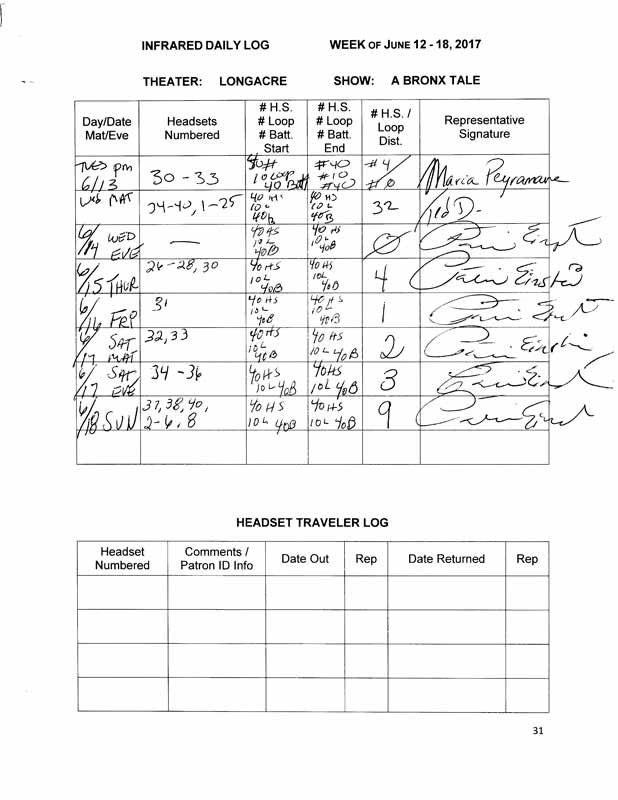 INFRARED DAILY LOG WEEK OF JUNE 12 - 18, 2017
THEATER: LONGACRE SHOW: A BRONX TALE
Day/Date Mat/Eve Headsets Numbered # H.S. # Loop # Batt. Start # H.S. # Loop # Batt. End # H.S. / Loop Dist. Representative Signature
TUES pm 6/13 30 - 33 40# 10 LOOP 40 Batt #40 #10 #40 #4 #0 Maria Peyramane
Wed MAT 34-40, 1-25 40 HS 10 L 40B 40 HS 10 L 40B 32
6/14 WED EVE — 40 HS 10 L 40B 40 HS 10L 40B 0
6/15 THUR 26-28, 30 40HS 10L 40B 40HS 10L 40B 4
6/16 FRI 31 40 HS 10L 40B 40 HS 10L 40B 1
6/17 SAT MAT 32,33 40HS 10L 40B 40 HS 10L 40B 2
6/17 SAT EVE 34 - 36 40HS 10L 40B 40HS 10L 40B 3
6/18 SUN 37, 38, 40, 2-6, 8 40HS 10L 40B 40HS 10L 40B 9
HEADSET TRAVELER LOG
Headset Numbered Comments / Patron ID Info Date Out Rep Date Returned Rep
31